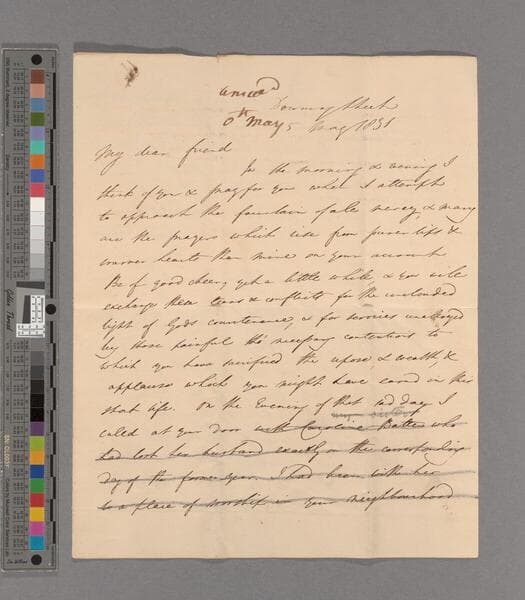 answd
Downing Street
6th May 5 May 1831
My dear friend
In the morning & evening I
think of you & pray for you when I attempt
to approach the fountain of all mercy, & many
are the prayers which rise from purer lips &
warmer hearts than mine on your account
Be of good cheer, yet a little while & you will
exchange these tears & conflicts for the unclouded
light of Gods countenance, & for
by those painful tho' necessary contentions to
which you have sacrificed the repose & wealth, &
applause which you might have earned in this
short life. On the Evening of that sad day I
called at your door with Caroline who
had lost her husband exactly on the corresponding
day of the former year. I had been with her
to a place of worship in your neighbourhood